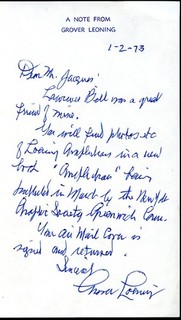 A NOTE FROM
GROVER LEONING
1-2-73
Dear Mr. Jacques
Lawrence Bell was a great
friend of mine.
You will find photos etc
of Loening Amphibians in a new
book "Amphibian" being
published in March by the New York
Graphic Society Greenwich Conn.
Your Air Mail Cover is
signed and returned.
Sincerely
Grover Loening